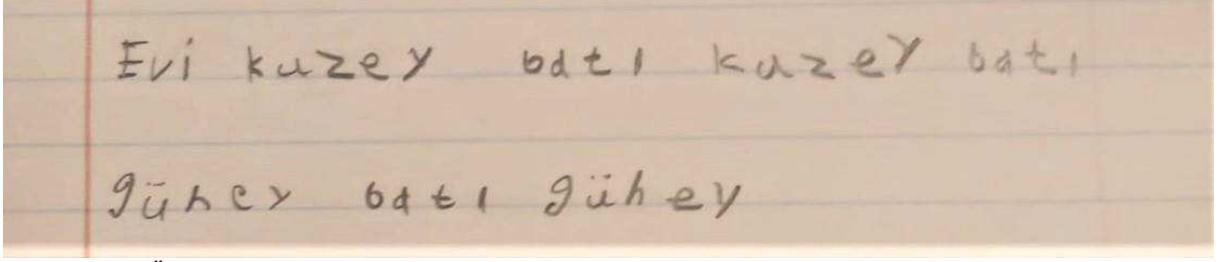 Evi kuzey batı kuzey batı
güney batı güney